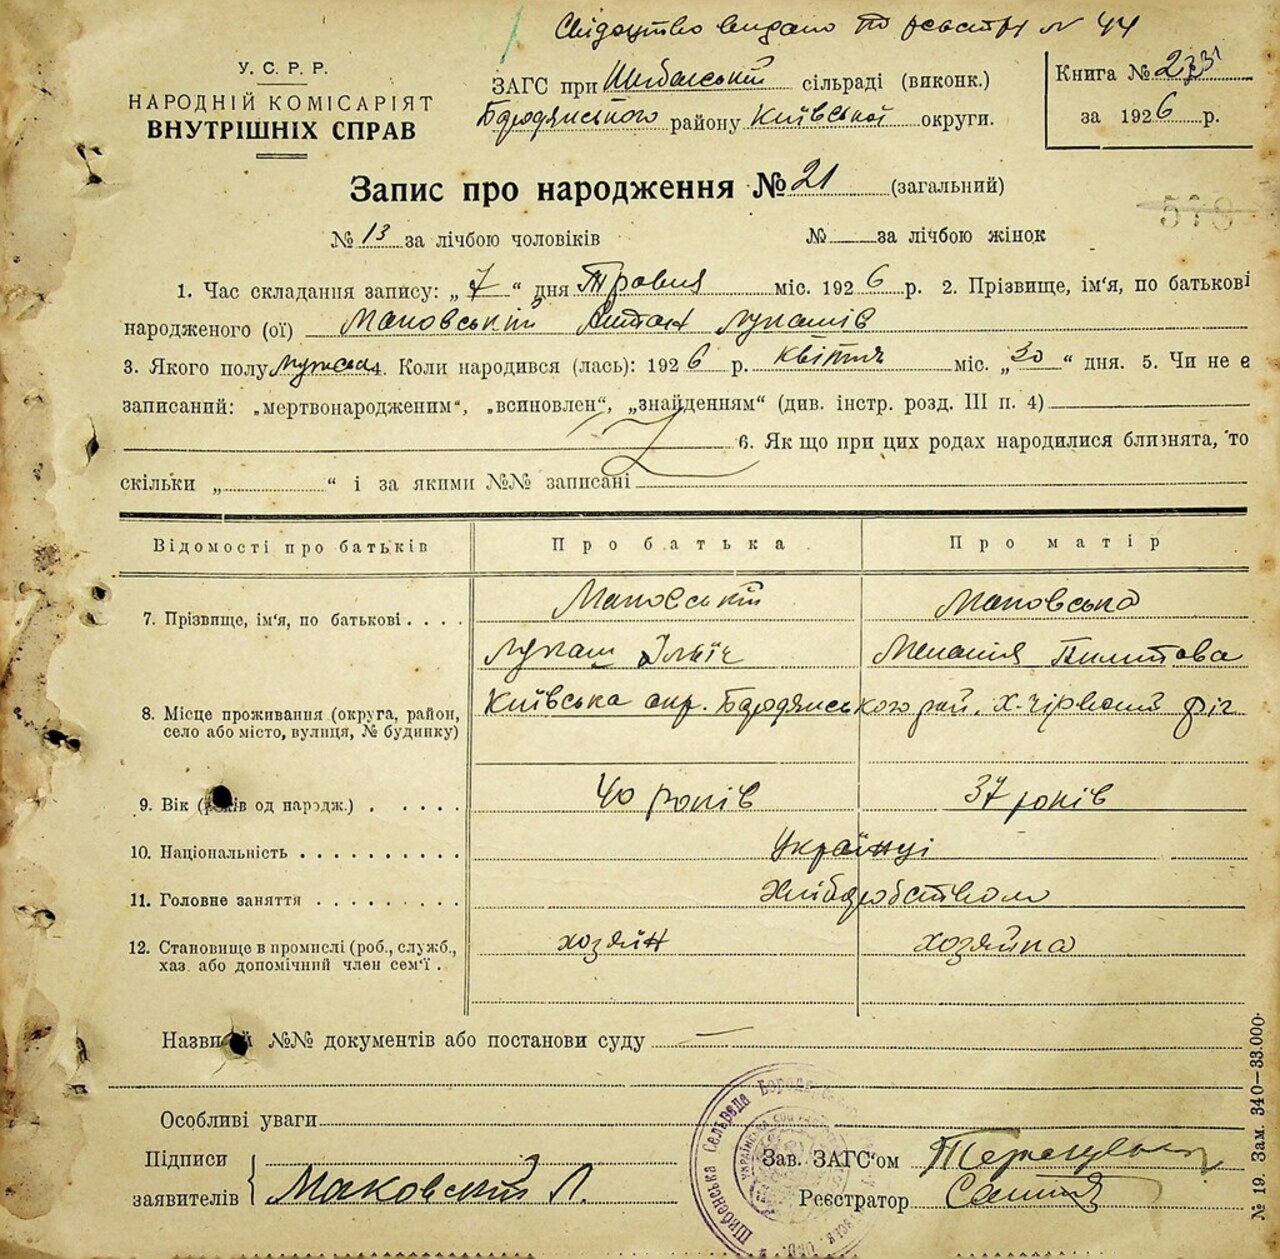 Свідоцтво видано по реєстру № 44
У. С. Р. Р.
НАРОДНІЙ КОМІСАРІЯТ
ВНУТРІШНІХ СПРАВ
ЗАГС при Шибенській сільраді (виконк.)
Бородянського району Київської округи.
Книга №
за 1926 р.
Запис про народження № 21 (загальний)
578
№ 13 за лічбою чоловіків № за лічбою жінок
1. Час складання запису: „7“ дня Травня міс. 1926 р. 2. Прізвище, ім'я, по батькові
народженого (ої) Маковський Антон Лукашів
3. Якого полу Мужськ. 4. Коли народився (лась): 1926 р. квітня міс. „30“ дня. 5. Чи не є
записаний: „мертвонародженим“, „всиновлен“, „знайденням“ (див. інстр. розд. III п. 4)
6. Як що при цих родах народилися близнята, то
скільки „ “ і за якими №№ записані
Відомості про батьків Про батька Про матір
7. Прізвище, ім'я, по батькові Маковській Маковська
Лукаш Ільїч Меланія Пилипова
8. Місце проживання (округа, район, село або місто, вулиця, № будинку) Київська окр. Бородянського рай. х. Червоний ріг
9. Вік (років од народж.) 40 років 37 років
10. Національність Українці
11. Головне заняття Хліборобством
12. Становище в промислі (роб., служб., хаз. або допомічний член сем'ї . хозяїн хозяйка
Назви й №№ документів або постанови суду —
Особливі уваги
Підписи
заявителів Маковский Л.
Зав. ЗАГС'ом
Реєстратор
Шибенська Сельрада
№ 19. Зам. 340—33.000.